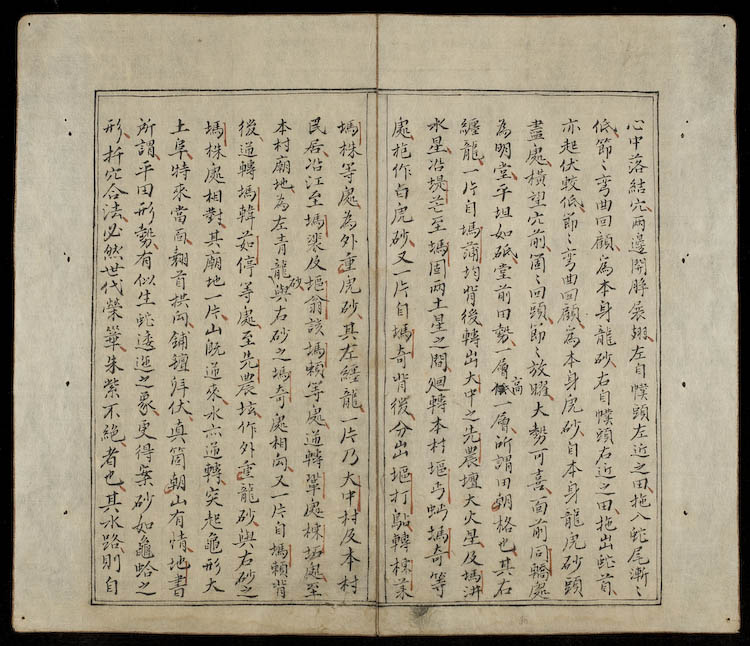 心中落結穴兩邊開脟展翅左自幞頭左近之田拖入蛇尾漸〻
低節〻弯曲回顧為本身龍砂右自幞頭右近之田拖出蛇首
亦起伏蛟低節〻弯曲回顧為本身虎砂自本身龍虎砂頭
盡處橫望穴前箇〻回頭節〻放蹤大勢可喜面前同轎處
為明堂平坦如砥堂前田勢一層高一層所謂田朝格也其右
纏龍一片自塢蒲均背後轉出大中之先農壇大火星及塢汫
水星沿堤芒至塢固兩土星之間廻轉本村塸丐塢奇等
處抱作白虎砂又一片自塢奇背後分出塸打點轉棟菜
塢株等處為外重虎砂其左纏龍一片乃大中村及本村
民居沿江至塢裴及塸翁該塢賴等處逶轉鞏處棟拓處至
本村廟地為左青龍砂與右砂之塢奇處相向又一片自塢賴背
後逶轉塢韓茹停等處至先農坛作外重龍砂與右砂之
塢株處相對其廟地一片山旣逶來水亦逶轉突起龜形大
土阜特來當面翹首拱向鋪氊拜伏真箇朝山有情地書
所謂平田形勢有似生蛇逶迤之象更得案砂如龜蛤之
形扦穴合法必然世代榮華朱紫不絶者也其水路則自